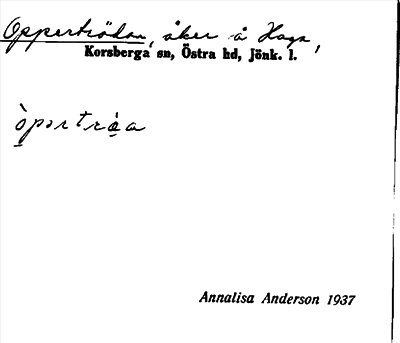 Oppertrödan, åker å Haga,
Korsberga sn, Östra hd, Jönk. l.
Annalisa Anderson 1937